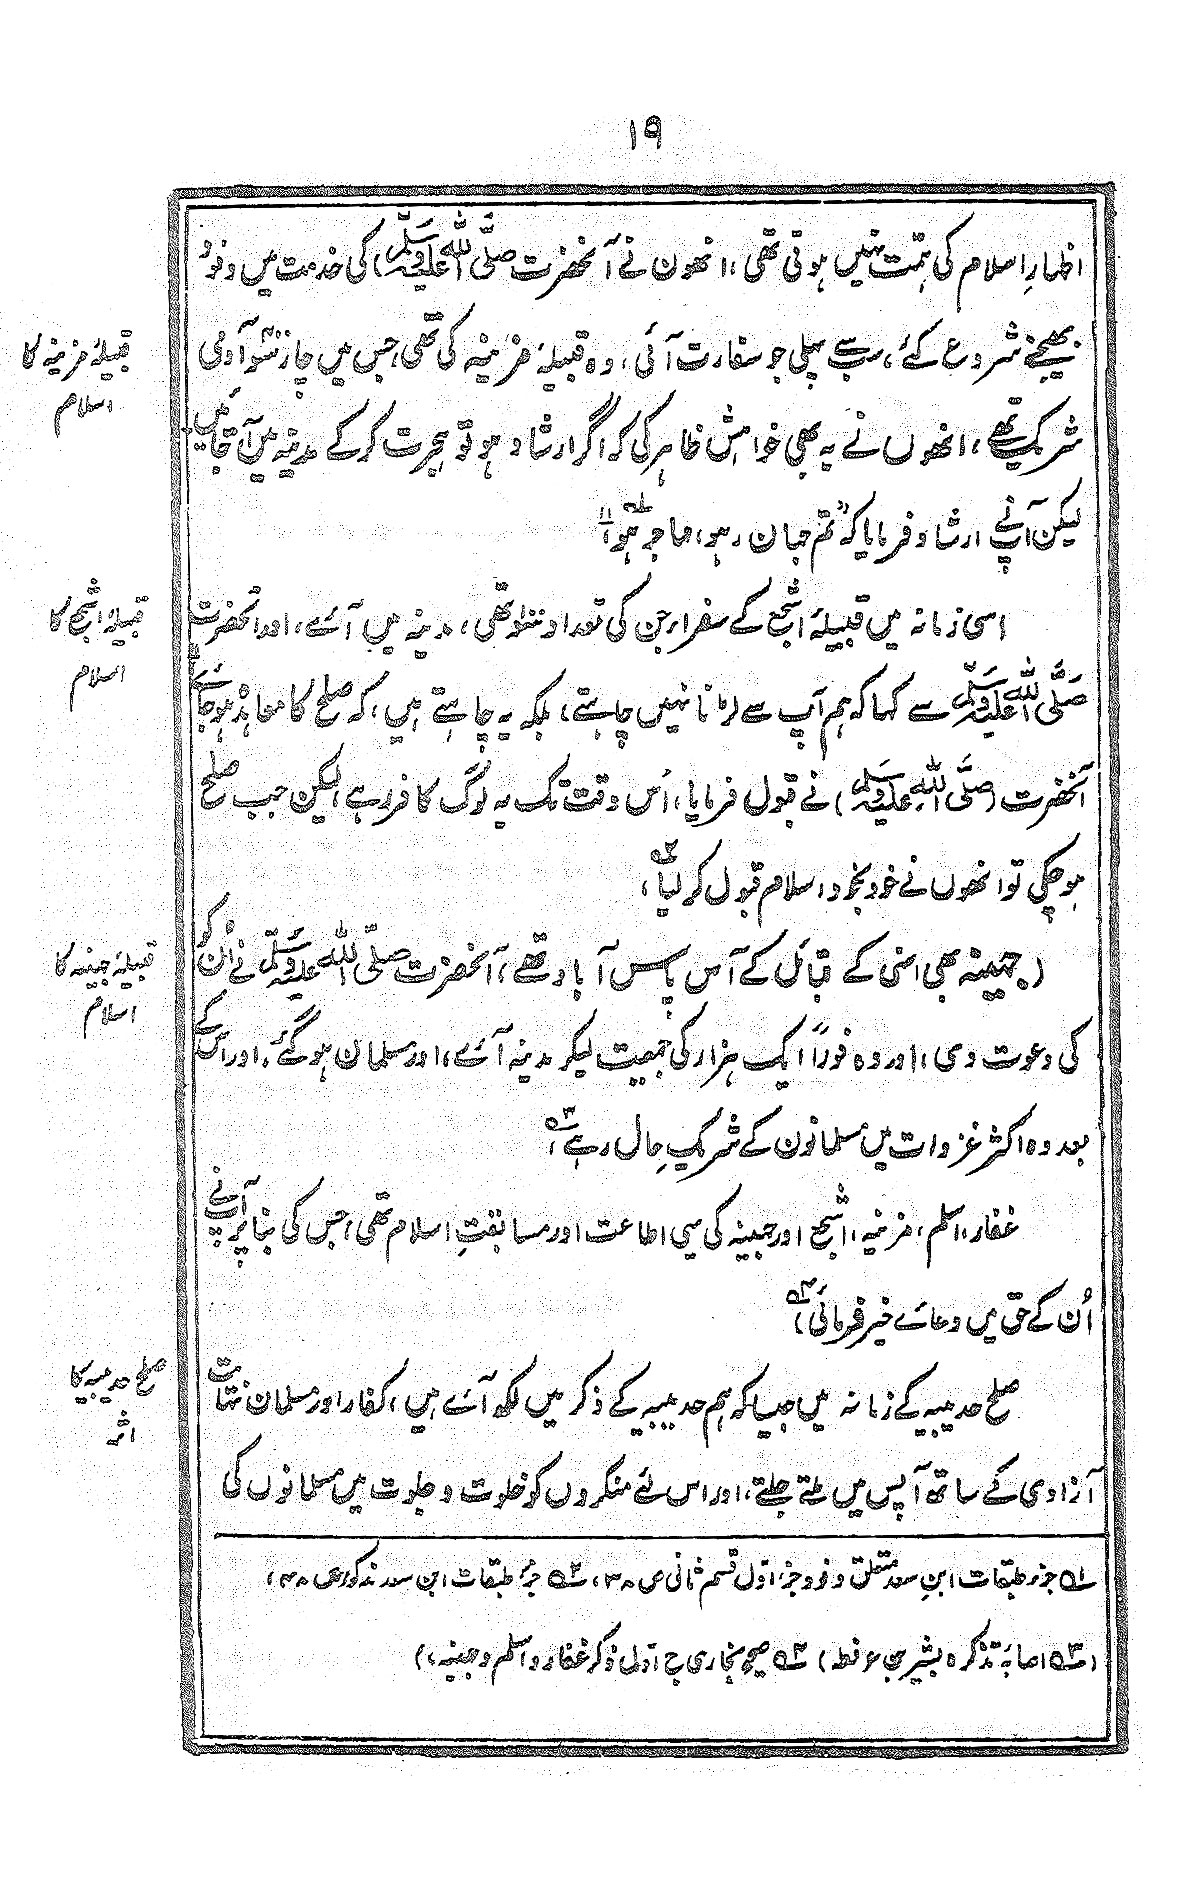 ۱۹
اظہارِ اسلام کی ہمّت نہیں ہوتی تھی، انھون نے آنحضرت صلّی اللہ علیہ وسلّم کی خدمت میں وفود
بھیجنے شروع کئے، سب سے پہلی جو سفارت آئی، وہ قبیلۂ مزینہ کی تھی، جس میں چار سَو آدمی
قبیلۂ مزینہ کا
اسلام
شریک تھے، انھوں نے یہ بھی خواہش ظاہر کی کہ اگر ارشاد ہو تو ہجرت کرکے مدینہ میں آجائیں
لیکن آپنے ارشاد فرمایا کہ "تم جہان رہو، مہاجر ہو"،
اسی زمانہ میں قبیلۂ اشجع کے سفراء جن کی تعداد سَو تھی، مدینہ میں آئے، اور آنحضرت
قبیلۂ اشجع کا
اسلام
صَلَّی اللہ علیہ وسَلَّم سے کہا کہ ہم آپ سے لڑنا نہیں چاہتے، بلکہ یہ چاہتے ہیں، کہ صلح کا معاہدہ ہو جائے
آنحضرت (صَلَّی اللہ علیہ وسلّم) نے قبول فرمایا، اُس وقت تک یہ لوگ کافر رہے، لیکن جب صلح
ہو چکی تو انھوں نے خود بخود اسلام قبول کر لیا،
(جہینہ بھی انہی کے قبائل کے آس پاس آباد تھے، آنحضرت صلّی اللہ علیہ وسلّم نے اُن کو
قبیلۂ جہینہ کا
اسلام
کی دعوت دی، اور وہ فوراً ایک ہزار کی جمعیت لیکر مدینہ آئے، اور مسلمان ہوگئے، اور اس کے
بعد وہ اکثر غزوات میں مسلمانون کے شریکِ حال رہے،
غفار، اسلم، مزینہ، اشجع اور جہینہ کی یہی اطاعت اور مسابقتِ اسلام تھی، جس کی بنا پر آپنے
اُن کے حق میں دعائے خیر فرمائی،)
صلح حدیبیہ کے زمانہ میں جیسا کہ ہم حدیبیہ کے ذکر میں لکھ آئے ہیں، کفار اور مسلمان نہایت
صلح حدیبیہ کا
اثر
آزادی کے ساتھ آپس میں ملتے جلتے، اور اس لئے منکروں کو خلوت و جلوت میں مسلمانوں کی
۱؎ جزء طبقات ابن سعد متعلق وفود جزء اوّل قسم ثانی ص ۳۸، ۲؎ جزء طبقات ابن سعد مذکور ص ۴۸،
(۳؎ اصابہ تذکرہ بشیر بن عرفطہ) ۴؎ صحیح بخاری ج اوّل ذکر غفار و اسلم و جہینہ،)